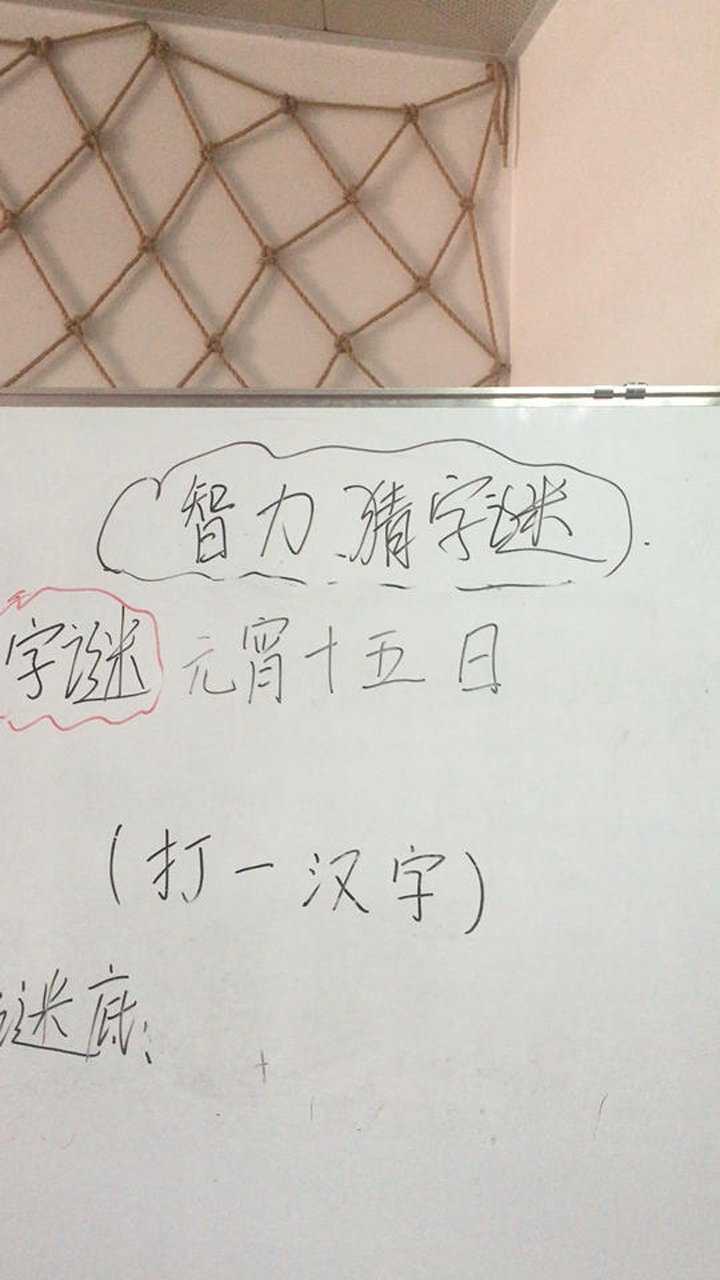 智力猜字谜
字谜 元宵十五日
(打一汉字)
谜底: